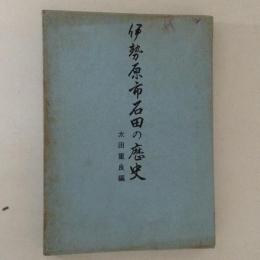 伊勢原市石田の歴史
太田重良編